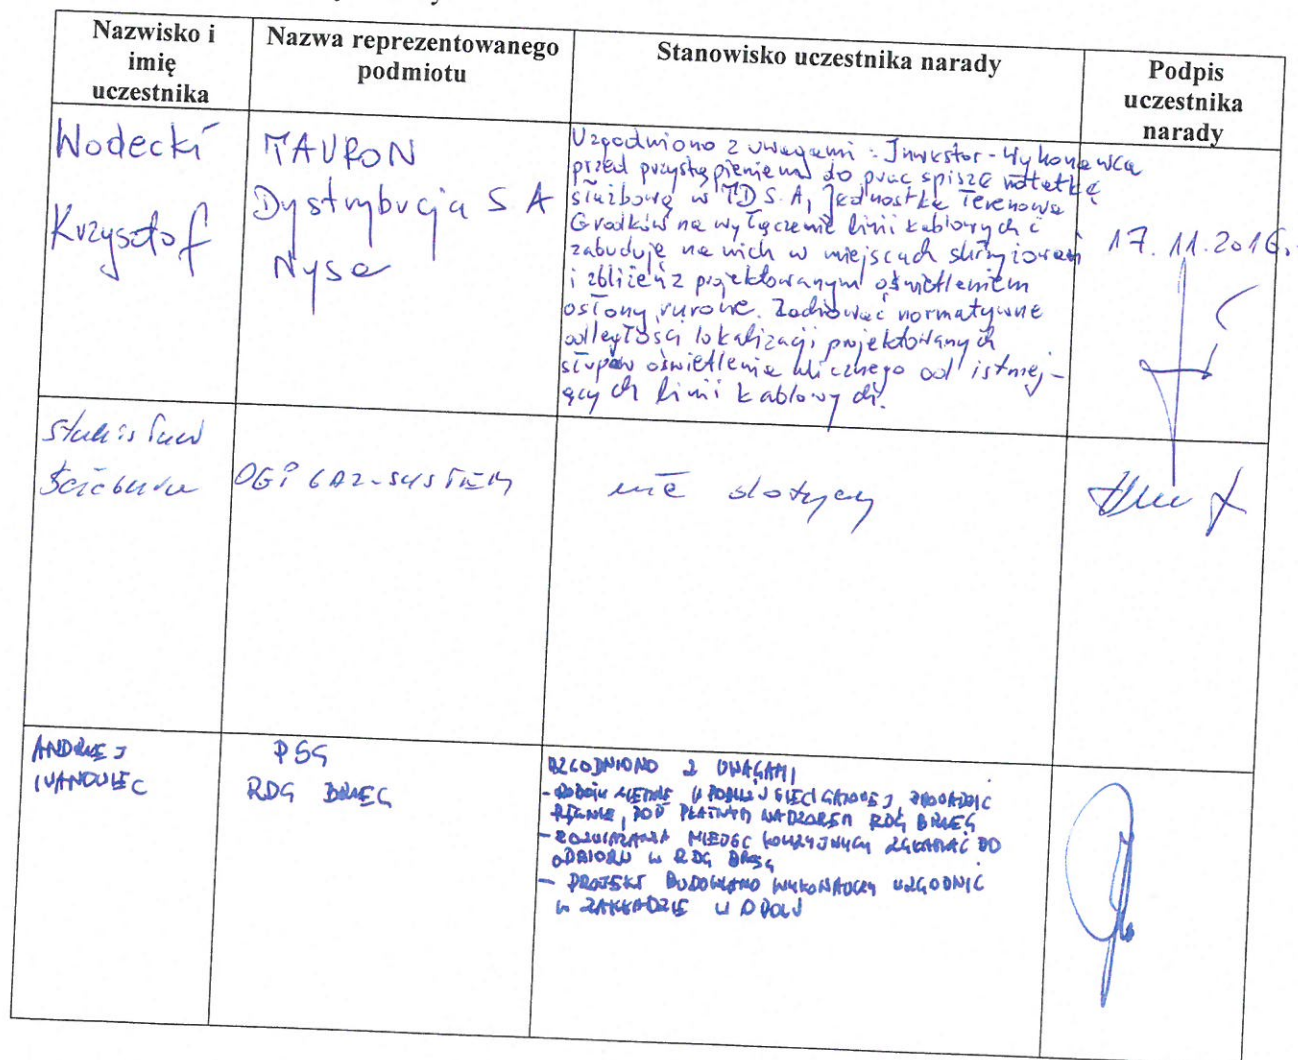 Nazwisko i
imię
uczestnika
Nazwa reprezentowanego
podmiotu
Stanowisko uczestnika narady
Podpis
uczestnika
narady
Wodecki
Krzysztof
TAURON
Dystrybucja S A
Nysa
Uzgodniono z uwagami: Inwestor-Wykonawca
przed przystąpieniem do prac spisze notatkę
służbową w TD S.A, Jednostka Terenowa
Grodków na wyłączenie linii kablowych i
zabuduje na nich w miejscach skrzyżowań
i zbliżeń z projektowanym oświetleniem
osłony rurowe. Zachować normatywne
odległości lokalizacji projektowanych
słupów oświetlenia ulicznego od istniej-
ących linii kablowych.
17.11.2016.
Stanisław
OGP GAZ-SYSTEM
nie dotyczy
ANDRZEJ
PSG
RDG BRZEG
UZGODNIONO Z UWAGAMI
- ROBOTY ZIEMNE W POBLIŻU SIECI GAZOWEJ, PROWADZIĆ
RĘCZNIE, POD PŁATNYM NADZOREM RDG BRZEG
- ROZWIĄZANIA MIEJSC KOLIZYJNYCH ZGŁASZAĆ DO
ODBIORU W RDG BRZEG
- PROJEKT BUDOWLANO WYKONAWCZY UZGODNIĆ
W ZAKŁADZIE W OPOLU